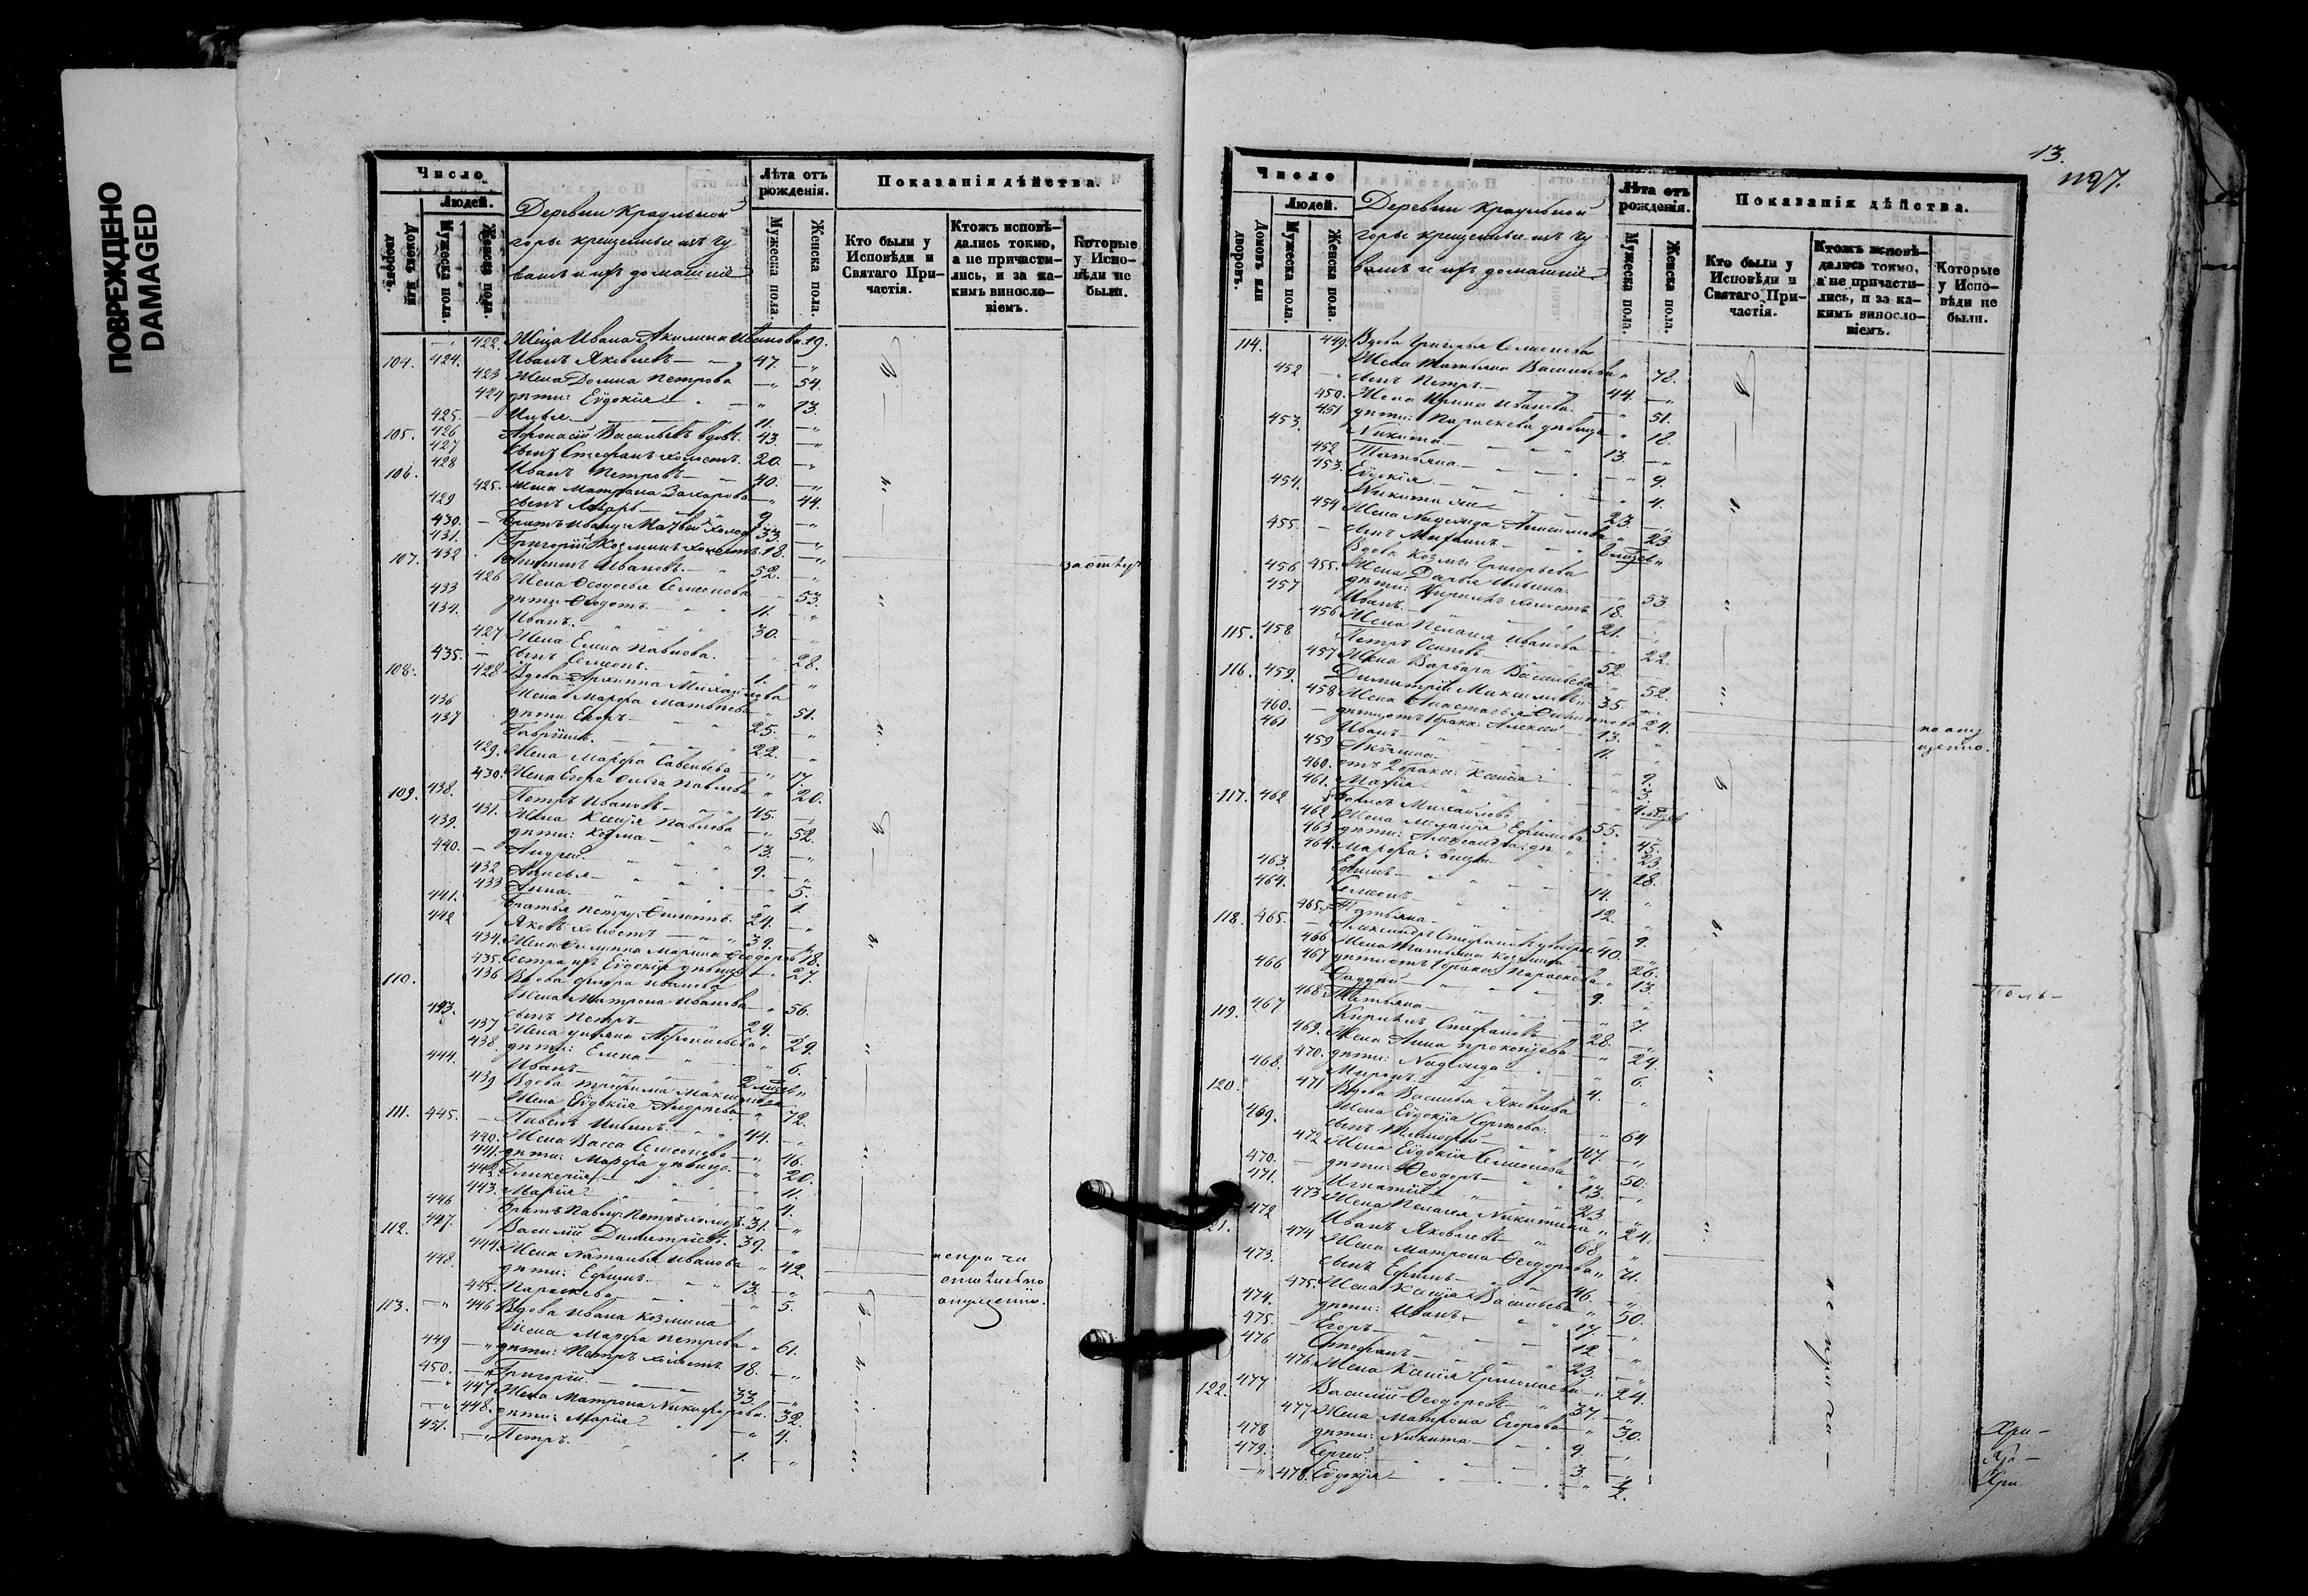 ПОВРЕЖДЕНО
DAMAGED
Число
Людей.
Домовъ или дворовъ.
Мужеска пола.
Женска пола.
Деревни Краульной
горы крещеные изъ чу
вашъ и ихъ домашніе
Лѣта отъ рожденія.
Мужеска пола.
Женска пола.
Показанія дѣйства.
Кто были у Исповѣди и Святаго Причастія.
Ктожъ исповѣдались токмо, а не причастились, и за какимъ винословіемъ.
Которые у Исповѣди не были.
422. Жена Ивана Акилина Иванова 19.
104. 424. Иванъ Яковлевъ 47.
423 Жена Домна Петрова 54.
424 дѣти: Евдокія 13.
425. Илья 11.
105. 426 Афонасій Васильевъ вдовъ. 43.
427 Сынъ Стефанъ холостъ. 20.
106. 428 Иванъ Петровъ 40.
425. Жена Матрона Захарова 44.
429 сынъ Лазарь 9.
430. Братъ Ивану: Матвей холос 33.
431. Григорій Козминъ холостъ 18.
107. 432 Иванов. 52.
426 Жена Ѳеодосья Семенова 53.
433 дѣти Ѳедотъ 11.
434. Иванъ. 30.
427 Жена Елена Павлова. 28.
435. Сынъ Семеонъ. 1.
108. 428 Вдова Архиппа Михайлова
Жена Марфа Матвѣева 51.
436 дѣти Егоръ 25.
437 Гавріилъ. 22.
429. Жена Марфа Савельева 17.
430. Жена Егора Ольга Павлова 20.
109. 438. Петръ Ивановъ 45.
431. Жена Ксенія Павлова 52.
439. дѣти: Козма 13.
440. Андрей 9.
432 Анисья 5.
433 Анна. 1.
441. Братья Петру: Филиппъ. 24.
442 Яковъ холостъ 39.
434. Жена Филиппа Марина Ѳеодоров 18.
435. Сестра ихъ Евдокія дѣвица 27.
110. 436 Вдова Ѳедора Иванова
Жена Матрона Иванова 56.
443. сынъ Петръ 29.
437 Жена Ульяна Афонасьева 29.
438. дѣти: Елена 6.
444. Иванъ 2 мѣсяц
439 Вдова Трофима Максимова
Жена Евдокія Андреева 72.
111. 445. Павелъ Ильинъ. 44.
440. Жена Васса Семенова 46.
441. дѣти: Марфа дѣвица. 20.
442. Гликерія 11.
443. Марія 4.
446 Братъ Павлу: Петръ холост. 31.
112. 447. Василій Димитріевъ. 39.
444. Жена Наталья Иванова 42.
448. дѣти: Ефимъ. 13.
445. Параскева 5.
113. 446. Вдова Ивана Козмина
Жена Марфа Петрова 61.
449 дѣти: Петръ холостъ 18.
450. Григорій. 33.
447 Жена Матрона Никифорова. 32.
448. дѣти: Марія 4.
451. Петръ. 1.
опущенію.
13.
1197.
Число
Людей.
Домовъ или дворовъ.
Мужеска пола.
Женска пола.
Деревни Краульной
горы крещеные изъ чу
вашъ и ихъ домашніе
Лѣта отъ рожденія.
Мужеска пола.
Женска пола.
Показанія дѣйства.
Кто были у Исповѣди и Святаго Причастія.
Ктожъ исповѣдались токмо, а не причастились, и за какимъ винословіемъ.
Которые у Исповѣди не были.
114. 449. Вдова Григорья Семенова
Жена Татьяна Васильева 78.
452 сынъ Петръ 44.
450. Жена Ирина Иванова. 51.
451 дѣти: Параскева дѣвица 18.
453. Никита 13.
452 Татьяна 9.
453. Евдокія 4.
454. Никита 23.
454 Жена Надежда Анисимова 23
455. сынъ Михаилъ
Вдова Козмы Григорьева
455. Жена Дарья Ильина. 53.
456 дѣти: Кириллъ холостъ 18.
457 Иванъ. 21.
456 Жена Пелагея Иванова 22.
115. 458 Петръ Осиповъ 52.
457 Жена Варвара Васильева 52.
116. 459. Димитрій Максимовъ 35.
458 Жена Анастасья Филиппова 24.
460. дѣти отъ 1 брака: Алексей 13.
461 Иванъ 11.
459 Акилина 9.
460. отъ 2 брака: Ксенія 3.
461. Марія 4 мѣсяц
117. 462 Борисъ Михайловъ 55.
462 Жена Меланія Ефимова 45.
463 дѣти: Александра: дѣ 23.
464. Марфа 18.
463. Ефимъ 14.
464. Семеонъ 12.
465. Татьяна 9.
118. 465. Александръ Стефановъ 40.
466 Жена Татьяна Козмина 26.
467 дѣти отъ 1 брака: Параскева 13.
466 Фаддей 9.
468. Татьяна 7.
119. 467 Кириллъ Стефановъ 28.
469. Жена Анна Прокопьева 24.
470. дѣти: Надежда 6.
468. Миронъ 4.
120. 471 Вдова Василья Яковлева
Жена Евдокія Сергѣева. 64
469. сынъ Тимофей 47.
472 Жена Евдокія Семенова 50.
470. дѣти: Ѳеодоръ 13.
471. Игнатій 23
473 Жена Пелагея Никитина 24.
472 Иванъ Яковлевъ 68.
474 Жена Матрона Ѳеодорова 71.
473. сынъ Ефимъ 46.
475. Жена Ксенія Васильева 50.
474. дѣти: Иванъ 17.
475. Егоръ 12
476 Стефанъ 23.
476 Жена Ксенія Ермолаева 24.
122. 477 Василій Ѳеодоровъ 37.
477 Жена Матрона Егорова 30.
478 дѣти: Никита 9.
479. Сергей. 3.
478. Евдокія 2.